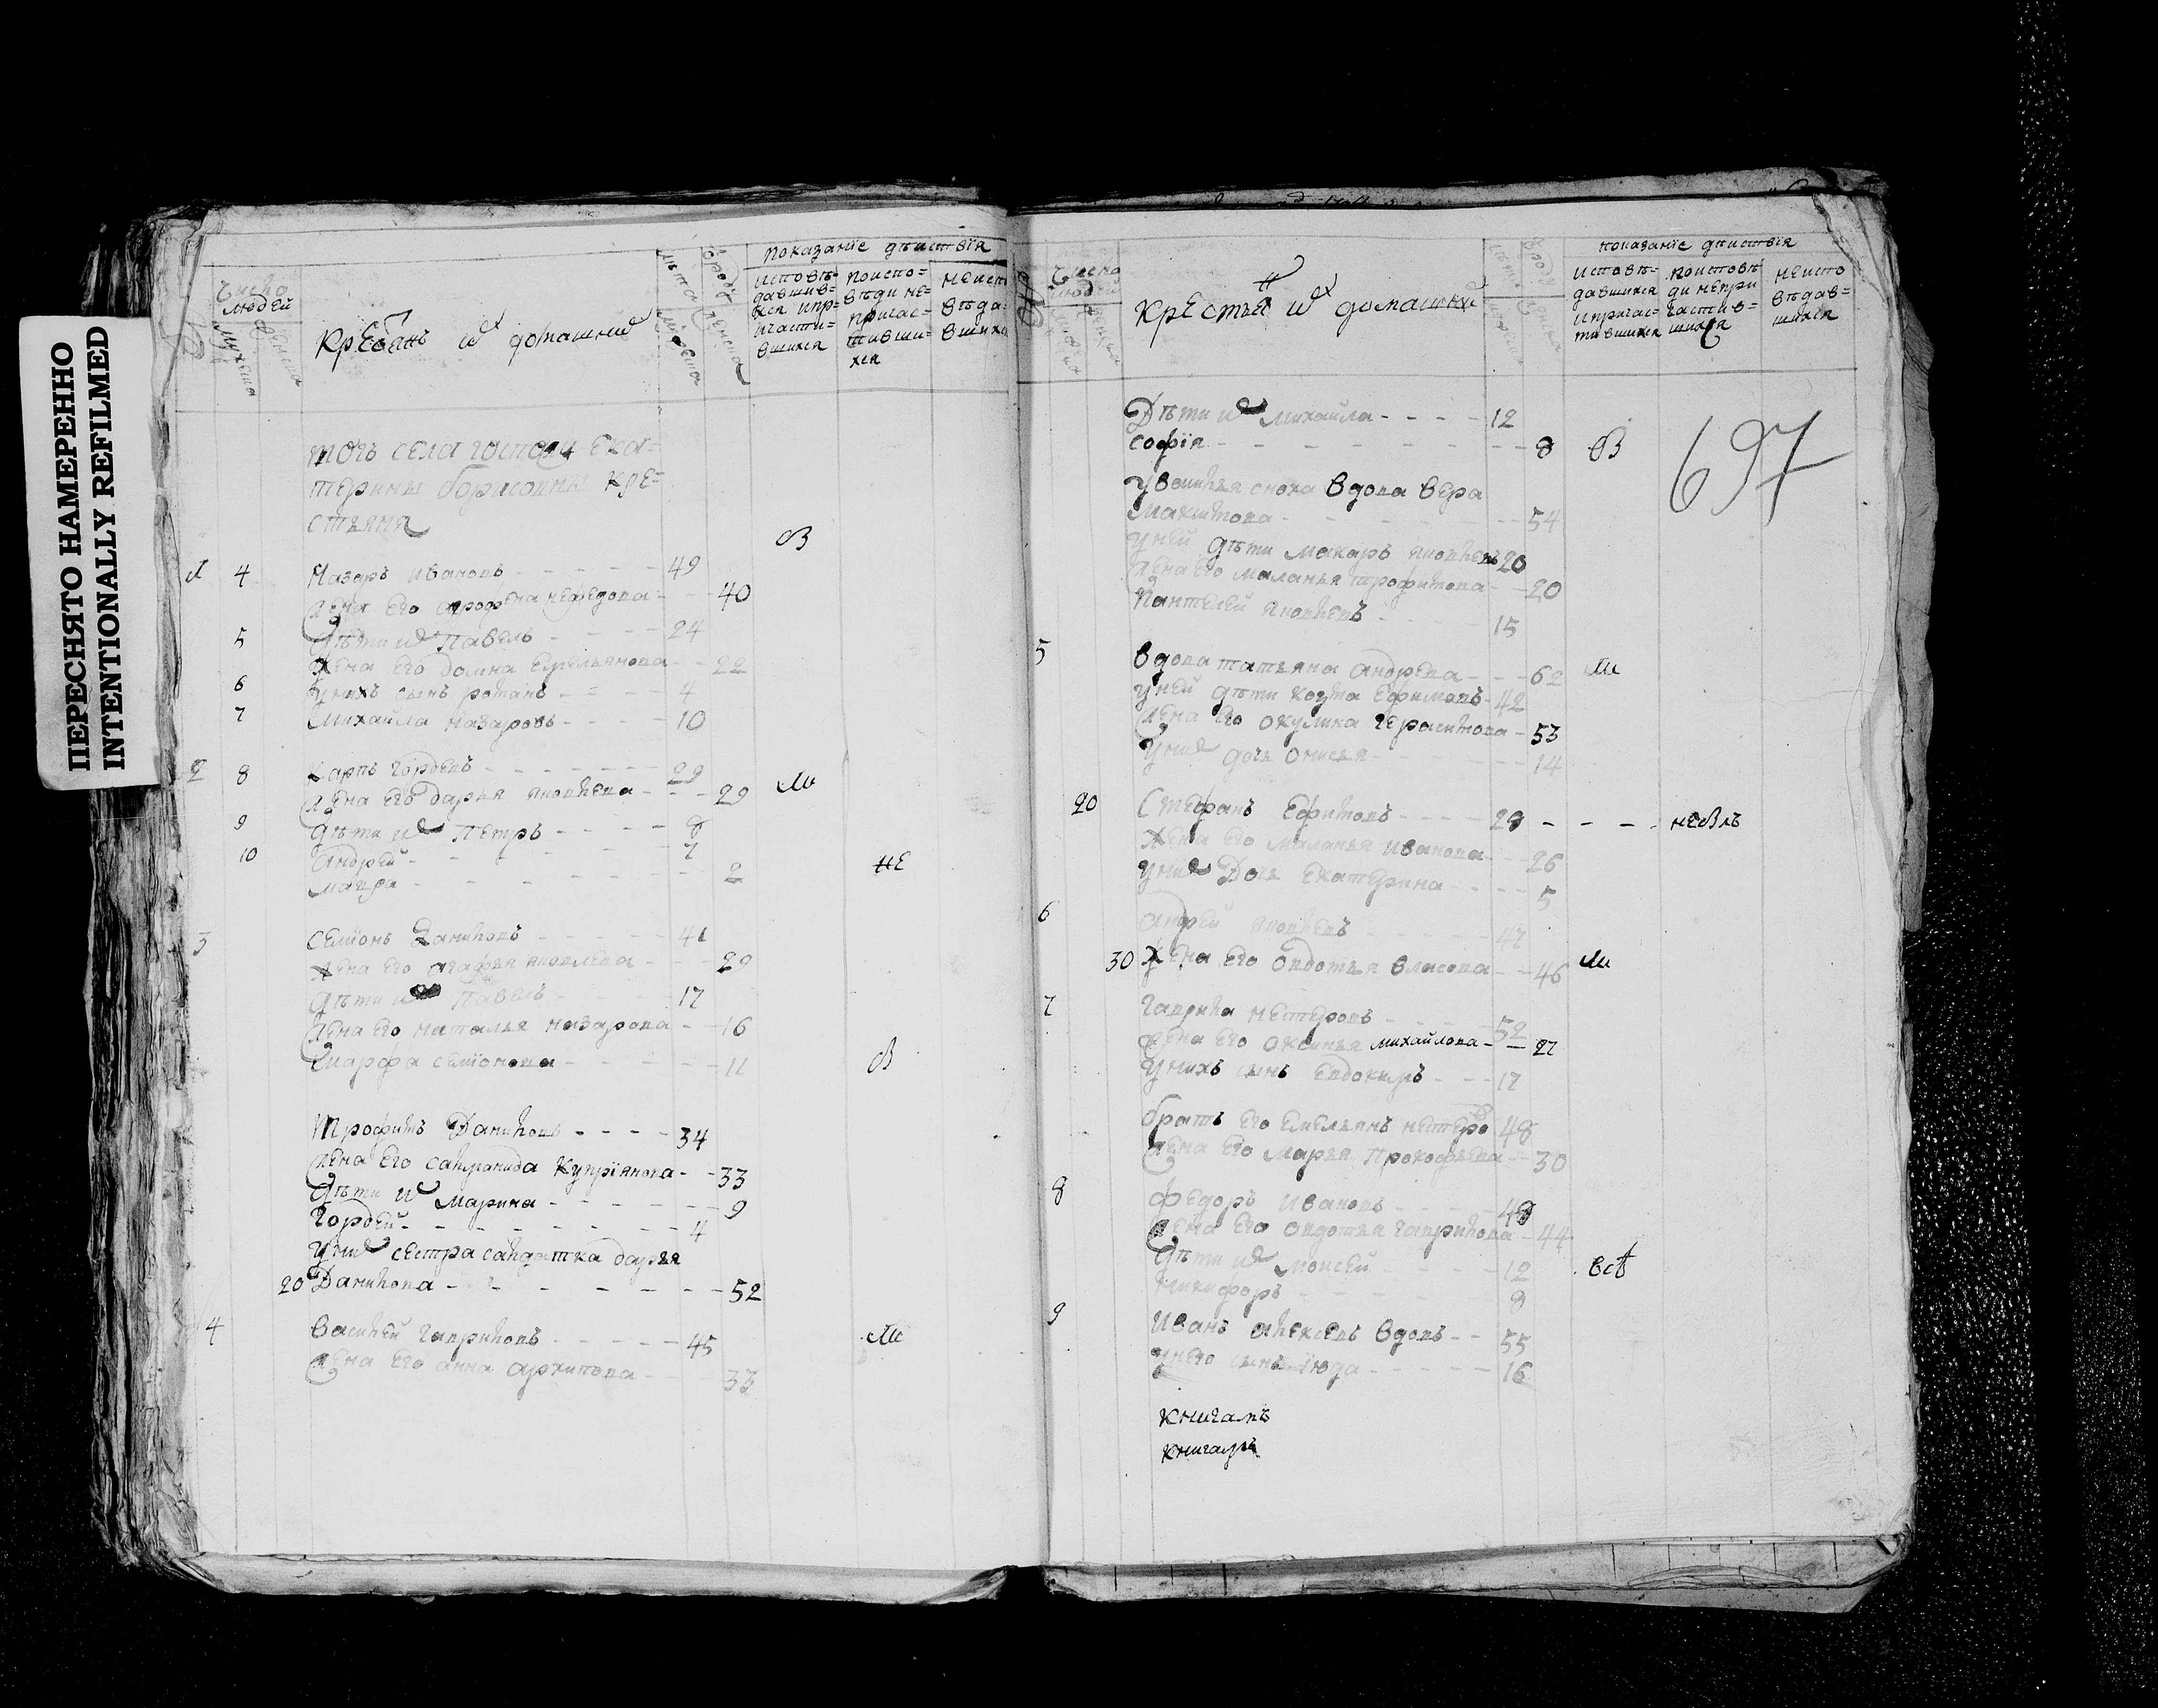 ПЕРЕСНЯТО НАМЕРЕННО
INTENTIONALLY REFILMED
Число
людей
мужеска
женска
Крестьянъ и их домашние
лѣта
мужеска
женска
показанiе дѣиствiя
исповѣ=
давшив=
хся ипр=
ичасти=
вшихся
поиспо=
вѣди не=
причас=
тивши=
хся
неисп
вѣда
вшихс
тогъ села госпожи Ека=
терины борисовны кре=
стьяня
В
1 4 Назаръ ивановъ - - - - 49
жена его афросена нефедова - - 40
5 дѣти их Павелъ - - - - 24
жена его домна емельянова - - 22
6 унихъ сынъ романъ - - - - 4
7 михайла назаровъ - - - - 10
2 8 Карпъ гордѣевъ - - - - 29
жена его дарья яковлева - - - 29 ли
9 дѣти их Петръ - - - - 8
10 андрей - - - - 7
мавра - - - - 2
не
3 семïонъ Даниловъ - - - - 41
жена его агафья яковлева - - - 29
дѣти их Павелъ - - - 17
жена его наталья назарова - - 16
марфа семïонова - - - - 11
В
Трофимъ Даниловъ - - - - 34
жена его Купрïянова - - 33
дѣти их марина - - - - 9
гордей - - - - 4
уних сестра салдатка дарья
20 Данилова - - - - 52
4 василей гавриловъ - - - - 45
ли
жена его анна архипова - - 33
Число
людей
Крестьян их домашний
показанiе дѣиствiя
исповѣ=
давшихся
ипричас=
тившихся
поисповѣ
ди непри
частив=
шихся
неиспо
вѣдав=
шихся
Дѣти их михайла - - - - 12
софïя - - - - 8 В
697
сноха вдова вера
макситова - - - - 54
уней дѣти макаръ яковлевъ 20
жена его маланья трофимова - - 20
Пантелей яковлевъ - - - - 15
5 вдова татьяна андрѣева - - - 62 ли
уней дѣти козма ефимовъ - 42
жена его окулина герасимова - 53
уних дочь онисья - - - - 14
20 Стефанъ Ефимовъ - - - - 29 - - -
жена его маланья иванова - - 26
уних Дочь екатерина - - - - 5
6 андрей яковлевъ - - - - 47
30 жена его овдотья власова - - 46 ли
7 гаврила нестеровъ - - - - 52
жена его оксинья михайлова - - 27
унихъ сынъ евдокимъ - - - 17
братъ его емельянъ нестеро 48
жена его марья Прокофьева - - 30
8 федоръ ивановъ - - - - 49
жена его овдотья гаврилова - 44
дѣти их моисей - - - - 12
всѣ
Никифоръ - - - - 9
9 иванъ алексевъ вдовъ - - 55
унего сынъ iюда - - - - 16
книгамъ
книгамъ